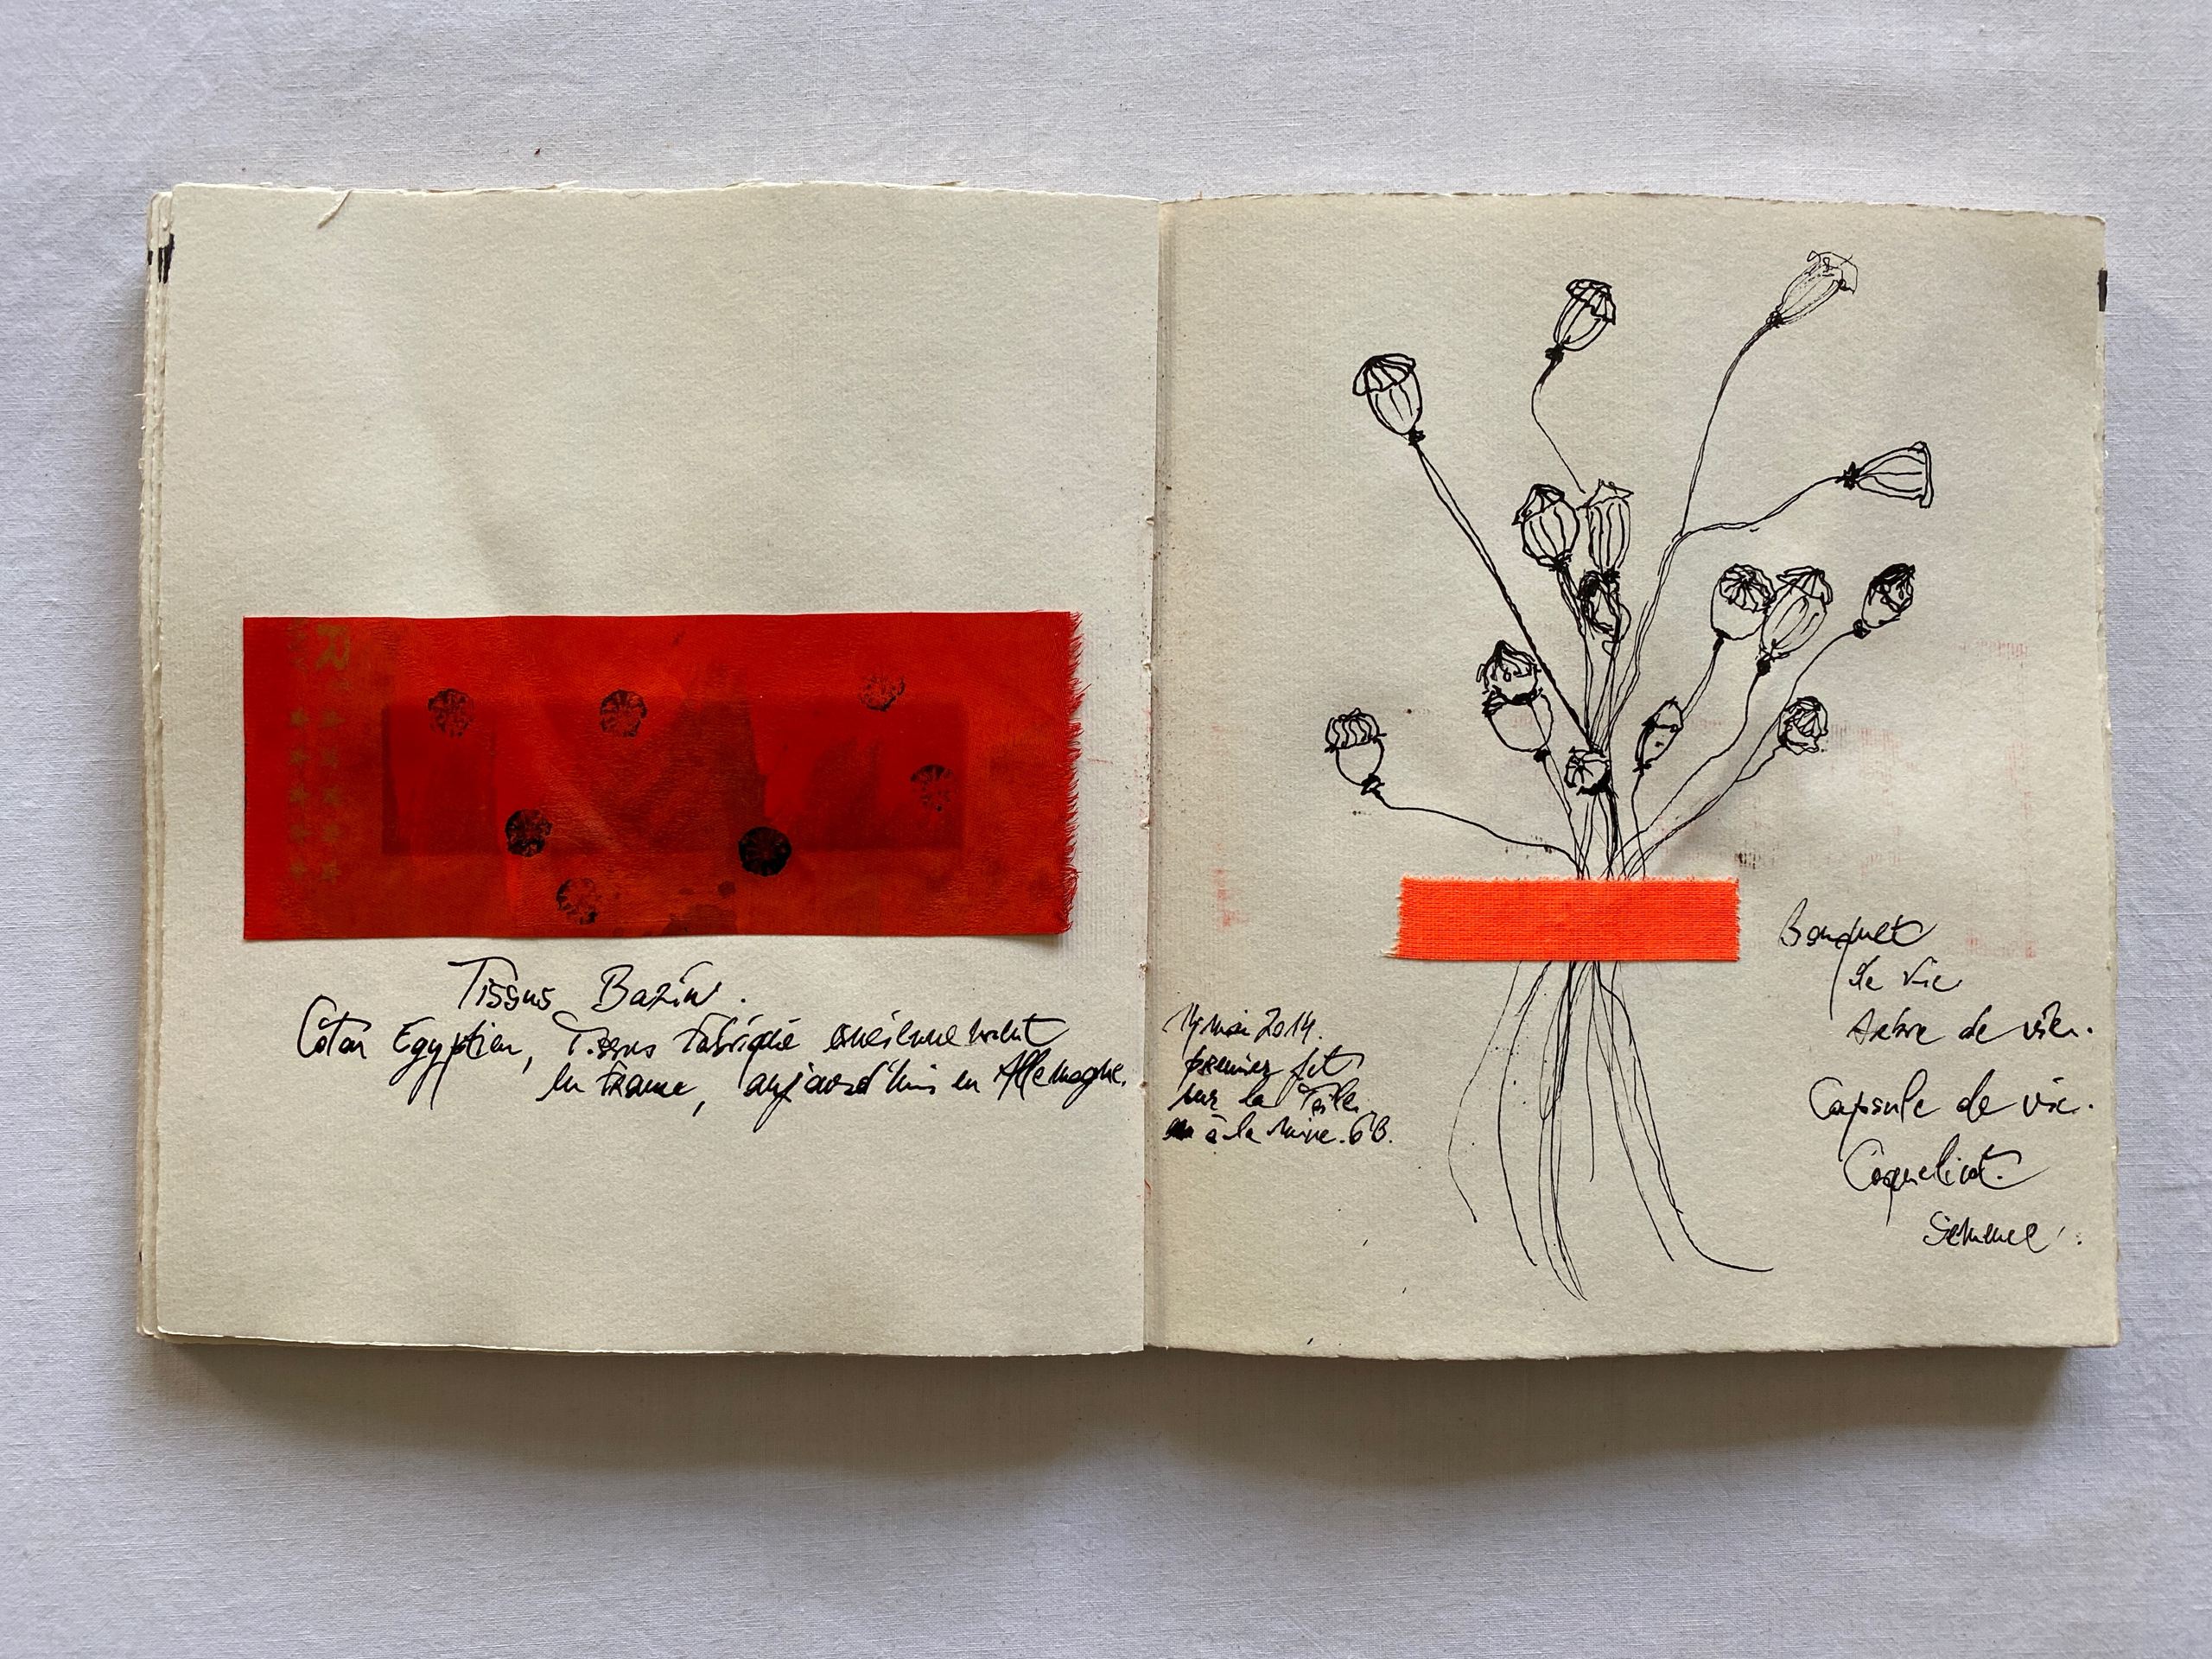 Tissus Bazin.
Coton Egyptien, Tissus fabriqué anciennement
en France, aujourd'hui en Allemagne.
14 mai 2014.
premier jet
sur la Toile
à la mine. 6B.
Bouquet
de vie
Arbre de vie.
Capsule de vie.
Coquelicot.